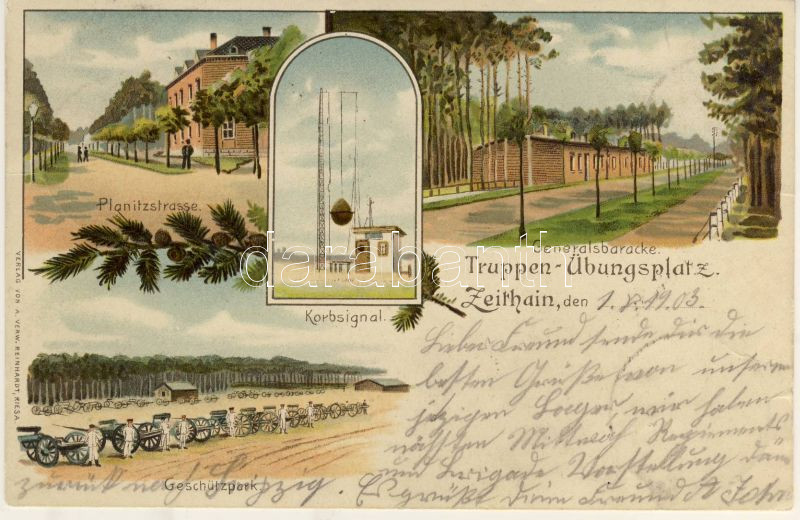 Planitzstrasse.
Korbsignal.
Generalsbaracke.
Truppen-Übungsplatz.
Zeithain, den 1. 8. 1903.
Lieber Freund sende dir die
besten Grüße von unserem
jezigen Lager, wir haben
nächsten Mittwoch Regiments
und Brigade Vorstellung dann
zurück nach Leipzig. Es grüßt Dein Freund
Geschützpark
VERLAG VON A. VERW. REINHARDT, RIESA.
darabanth